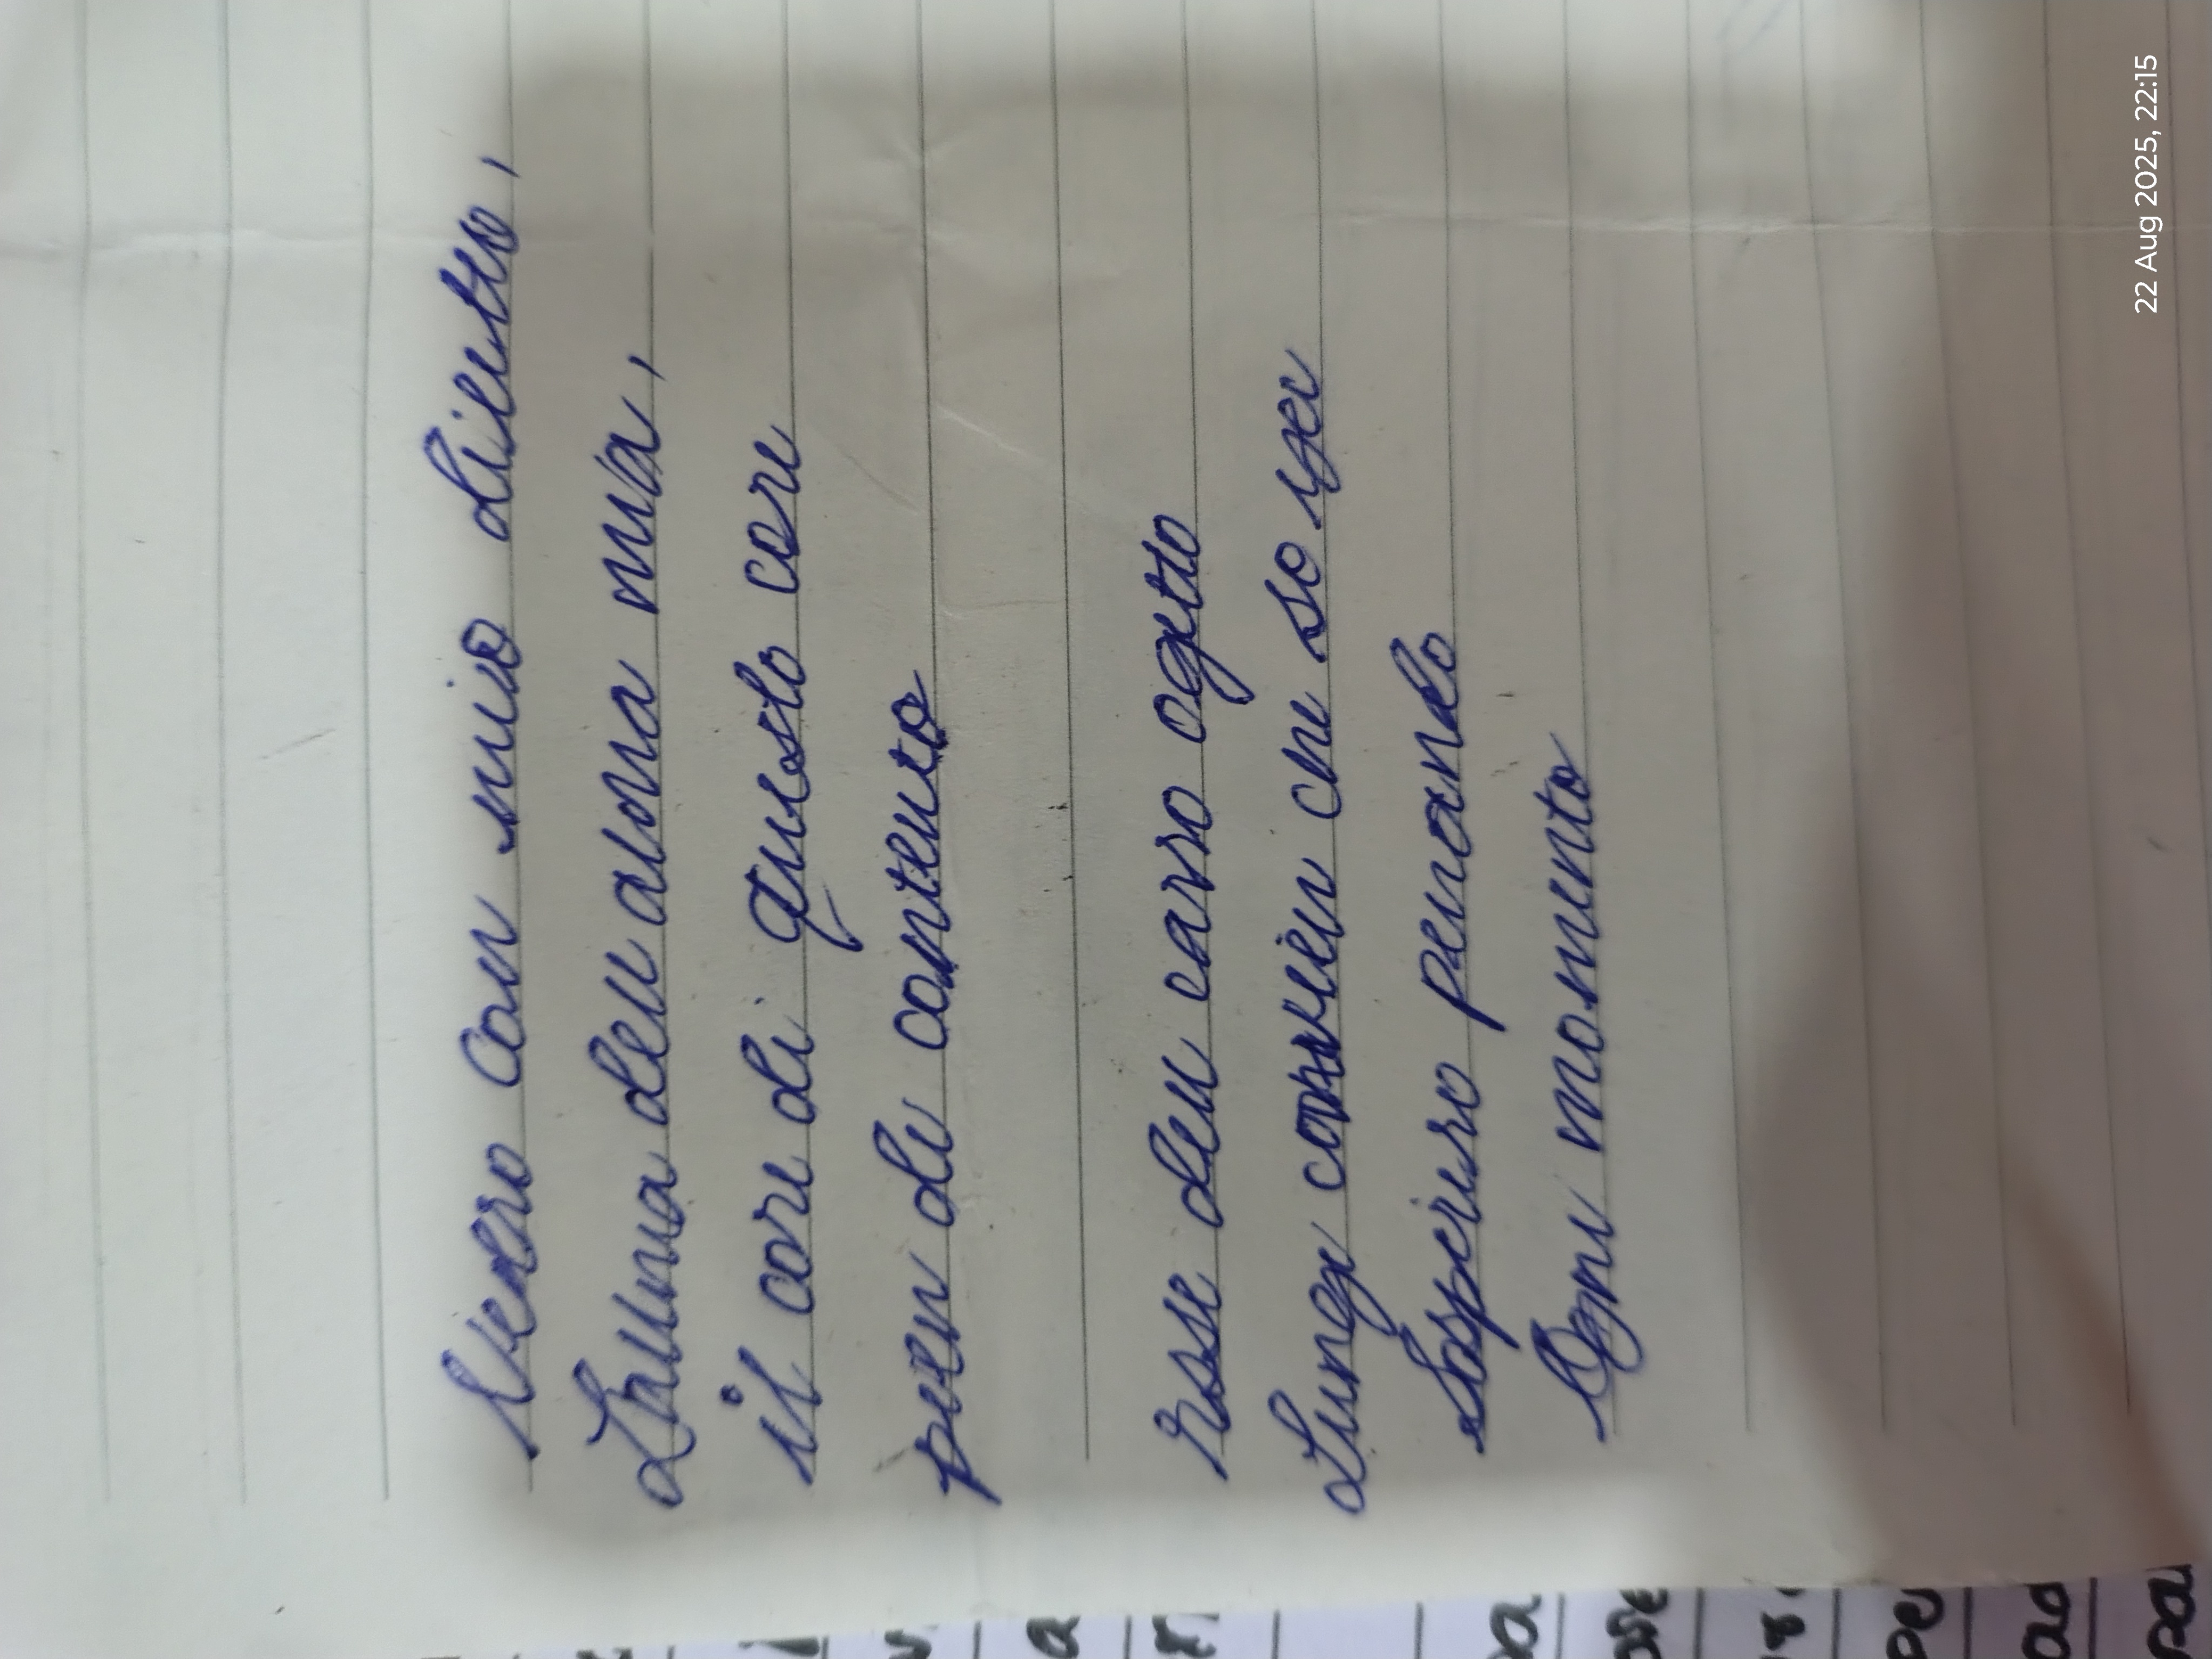 Vedro con mio diletto,
Lauma deu auma mia,
il core di questo core
pien di contento
Esse deu caro ogetto
Lunge convien che so
sospirero penando
Ogni momento
22 Aug 2025, 22:15